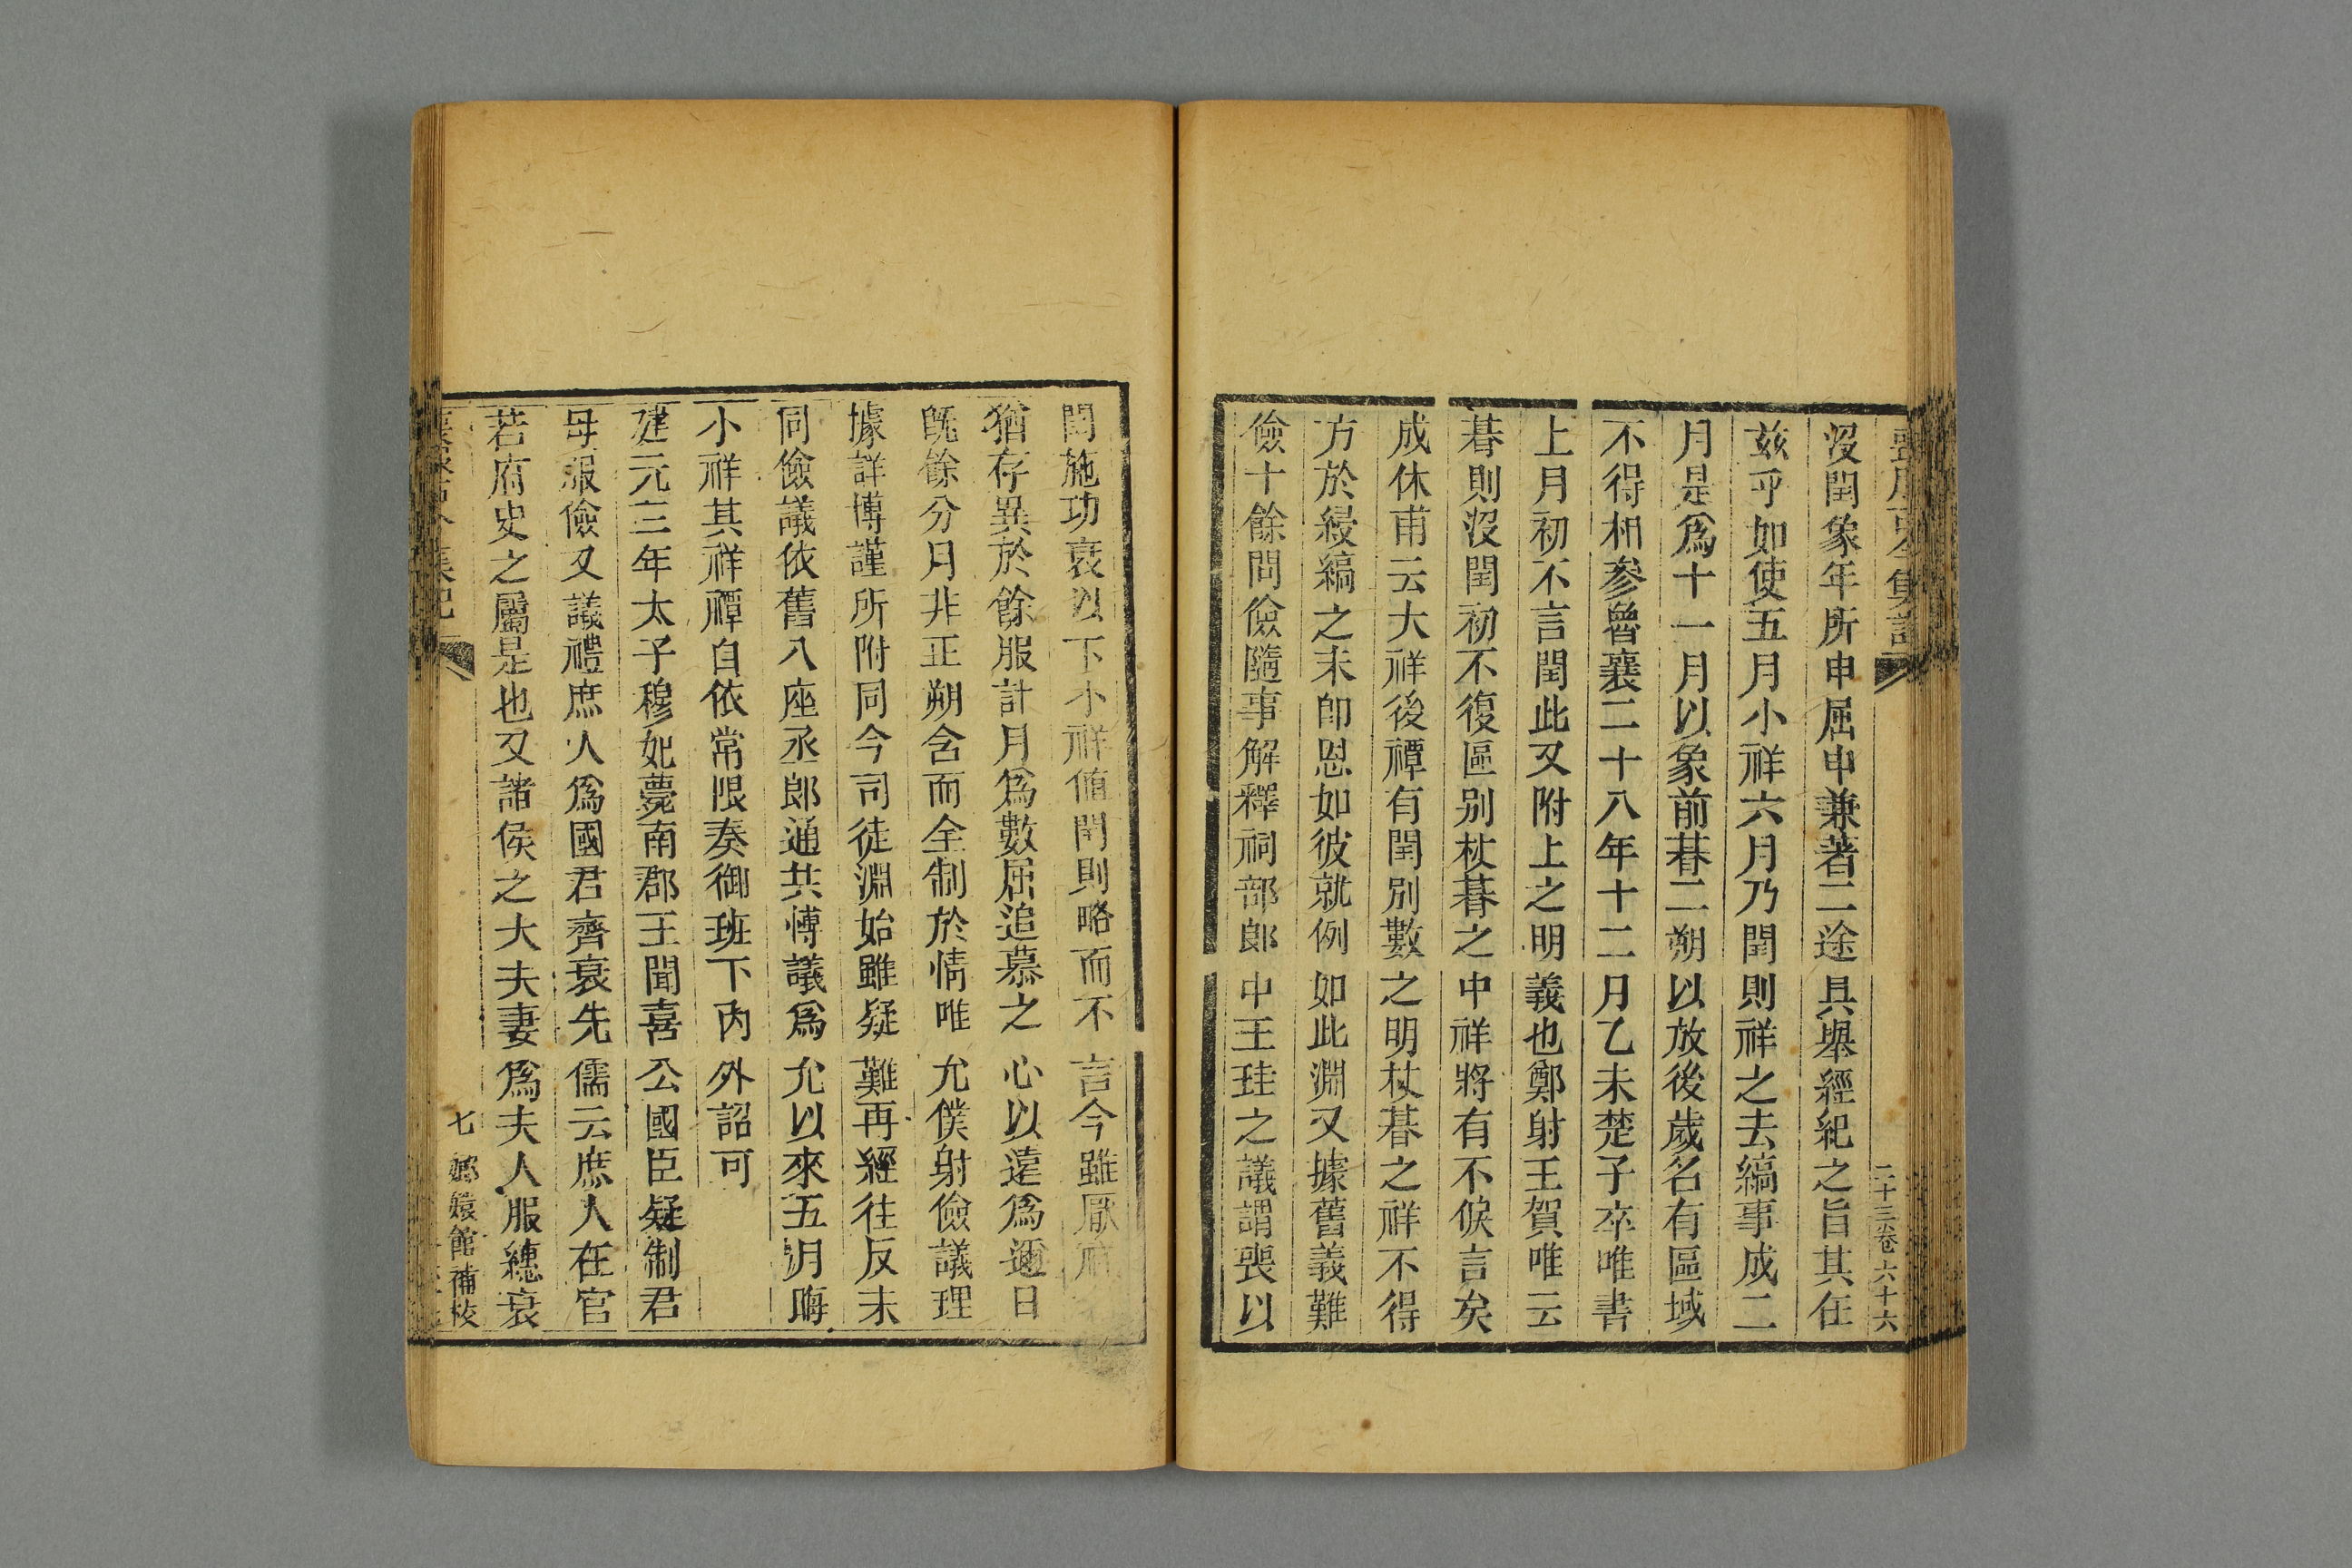 二十三卷 六十六
沒閏象年所申屈申兼著二途具舉經紀之旨其在
兹乎如使五月小祥六月乃閏則祥之去縞事成二
月是爲十一月以象前朞二朔以放後歲名有區域
不得相參魯襄二十八年十二月乙未楚子卒唯書
上月初不言閏此又附上之明義也鄭射王賀唯云
朞則沒閏初不復區别杖朞之中祥將有不俟言矣
成休甫云大祥後禫有閏別數之明杖朞之祥不得
方於綅縞之末卽恩如彼就例如此淵又據舊義難
儉十餘問儉隨事解釋祠部郎中王珪之議謂喪以
閏施功衰以下小祥値閏則略而不言今雖厭
猶存異於餘服計月爲數屈追慕之心以遠爲邇日
旣餘分月非正朔含而全制於情唯允僕射儉議理
據詳博謹所附同今司徒淵始雖疑難再經往反未
同儉議依舊八座丞郎通共博議爲允以來五月晦
小祥其祥禫自依常限奏御班下內外詔可
建元三年太子穆妃薨南郡王聞喜公國臣疑制君
母服儉又議禮庶人爲國君齊衰先儒云庶人在官
若府史之屬是也又諸侯之大夫妻爲夫人服繐衰
七 嫏嬛館補校